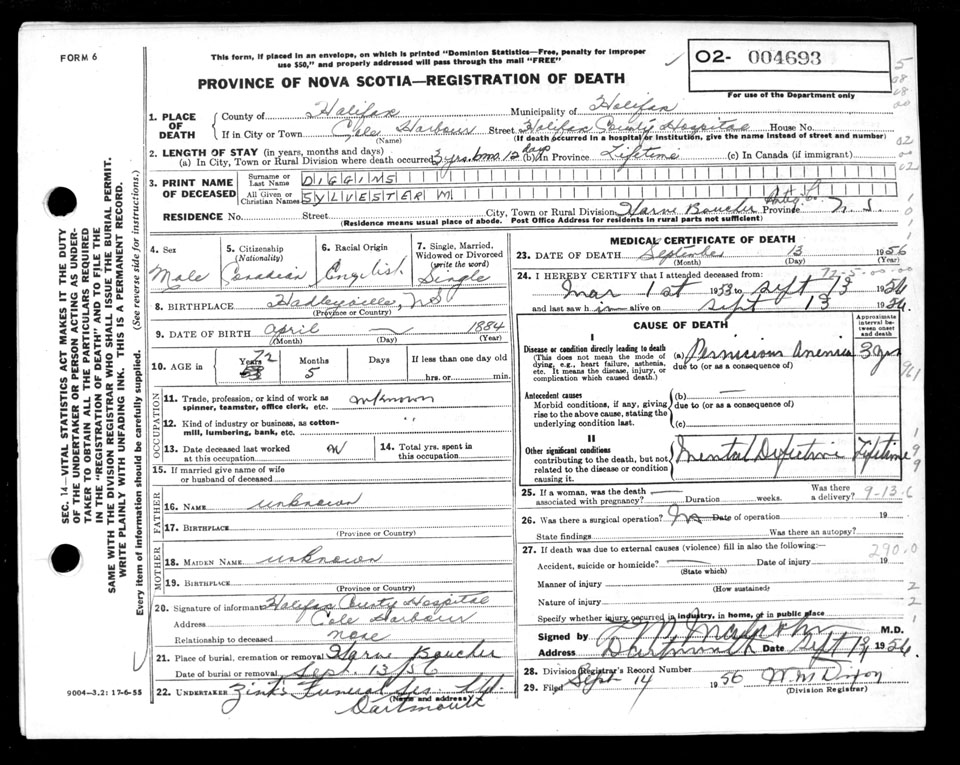 FORM 6
This form, if placed in an envelope, on which is printed "Dominion Statistics—Free, penalty for improper
use $50," and properly addressed will pass through the mail "FREE"
02- 004693
For use of the Department only
PROVINCE OF NOVA SCOTIA—REGISTRATION OF DEATH
1. PLACE OF DEATH County of Halifax Municipality of Halifax
If in City or Town Cole Harbour Street Halifax County Hospital House No.
(Name) (If death occurred in a hospital or institution, give the name instead of street and number)
2. LENGTH OF STAY (in years, months and days)
(a) In City, Town or Rural Division where death occurred 3 yrs. 6mo. 12 days (b) In Province Lifetime (c) In Canada (if immigrant)
3. PRINT NAME OF DECEASED Surname or Last Name DIGGINS
All Given or Christian Names SYLVESTER M
RESIDENCE No. Street City, Town or Rural Division Harve Boucher Antig Co. Province N.S.
(Residence means usual place of abode. Post Office Address for residents in rural parts not sufficient)
4. Sex 5. Citizenship (Nationality) 6. Racial Origin 7. Single, Married, Widowed or Divorced (write the word)
Male Canadian English Single
8. BIRTHPLACE Hadleyville, NS
(Province or Country)
9. DATE OF BIRTH April 1884
(Month) (Day) (Year)
10. AGE Years 72 Months 5 Days If less than one day old hrs. or min.
OCCUPATION
11. Trade, profession, or kind of work as spinner, teamster, office clerk, etc. unknown
12. Kind of industry or business, as cotton-mill, lumbering, bank, etc. "
13. Date deceased last worked at this occupation 14. Total yrs. spent in this occupation
15. If married give name of wife or husband of deceased
FATHER
16. Name unknown
17. Birthplace
(Province or Country)
MOTHER
18. Maiden Name unknown
19. Birthplace
(Province or Country)
20. Signature of informant Halifax County Hospital
Address Cole Harbour
Relationship to deceased none
21. Place of burial, cremation or removal Harve Boucher
Date of burial or removal Sep. 13/56
22. Undertaker Zink's Funeral
(Name and address)
Dartmouth
9004—3.2: 17-6-55
MEDICAL CERTIFICATE OF DEATH
23. DATE OF DEATH September 13 1956
(Month) (Day) (Year)
24. I HEREBY CERTIFY that I attended deceased from:
Mar 1st 1953 to Sept 13 1956
and last saw h im alive on Sept 13 1956.
CAUSE OF DEATH
Approximate interval between onset and death
I
Disease or condition directly leading to death
(This does not mean the mode of dying, e.g., heart failure, asthenia, etc. It means the disease, injury, or complication which caused death.)
(a) Pernicious Anemia 3 yrs
due to (or as a consequence of)
Antecedent causes
Morbid conditions, if any, giving rise to the above cause, stating the underlying condition last.
(b)
due to (or as a consequence of)
(c)
II
Other significant conditions
contributing to the death, but not related to the disease or condition causing it.
Mental Defective Lifetime
25. If a woman, was the death associated with pregnancy? Duration weeks. Was there a delivery? 9-13-6
26. Was there a surgical operation? No Date of operation 19
State findings Was there an autopsy?
27. If death was due to external causes (violence) fill in also the following: 290.0
Accident, suicide or homicide? Date of injury 19
(State which)
Manner of injury
(How sustained)
Nature of injury
Specify whether injury occurred in industry, in home, or in public place
Signed by M.D.
Address Dartmouth Date Sept 14 1956.
28. Division Registrar's Record Number
29. Filed Sept 14 1956 W. M. Dixon
(Division Registrar)
SEC. 14—VITAL STATISTICS ACT MAKES IT THE DUTY
OF THE UNDERTAKER OR PERSON ACTING AS UNDER-
TAKER TO OBTAIN ALL THE PARTICULARS REQUIRED
IN THE "REGISTRATION OF DEATH" AND TO FILE THE
SAME WITH THE DIVISION REGISTRAR WHO SHALL ISSUE THE BURIAL PERMIT.
WRITE PLAINLY WITH UNFADING INK. THIS IS A PERMANENT RECORD.
Every item of information should be carefully supplied. (See reverse side for instructions.)